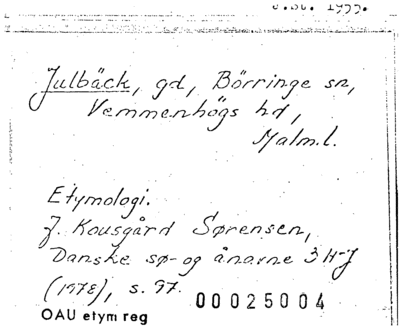 Julbäck, gd, Börringe sn,
Vemmenhögs hd,
Malm.l.
Etymologi.
J. Kousgård Sørensen,
Danske sø- og ånavne 3 H-J
(1978), s. 97.
00025004
OAU etym reg